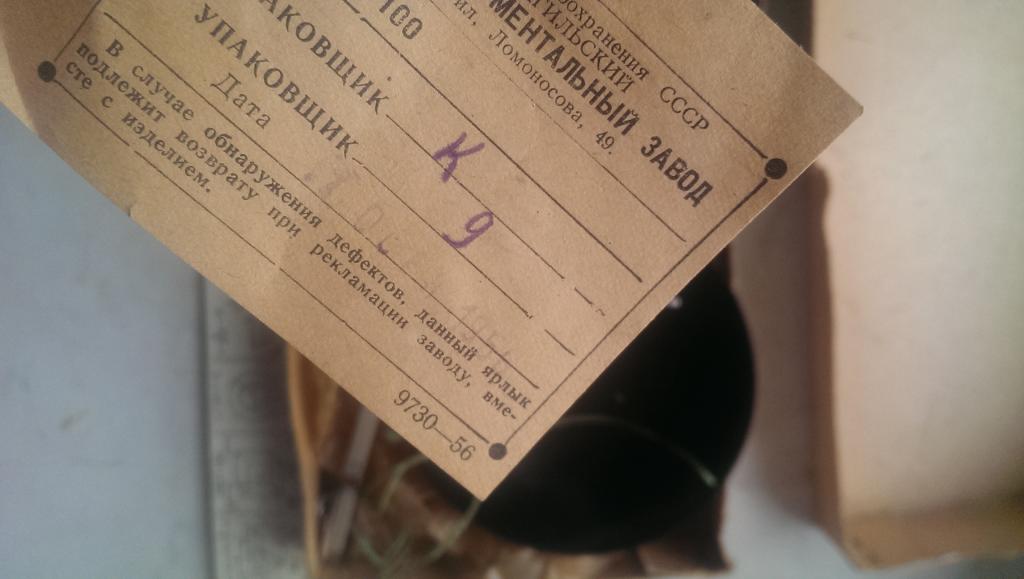 оохранения СССР
ИЛЬСКИЙ
МЕНТАЛЬНЫЙ ЗАВОД
ул. Ломоносова, 49.
100
АКОВЩИК К
УПАКОВЩИК 9
Дата
В случае обнаружения дефектов, данный ярлык
подлежит возврату при рекламации заводу, вме-
сте с изделием.
9730—56